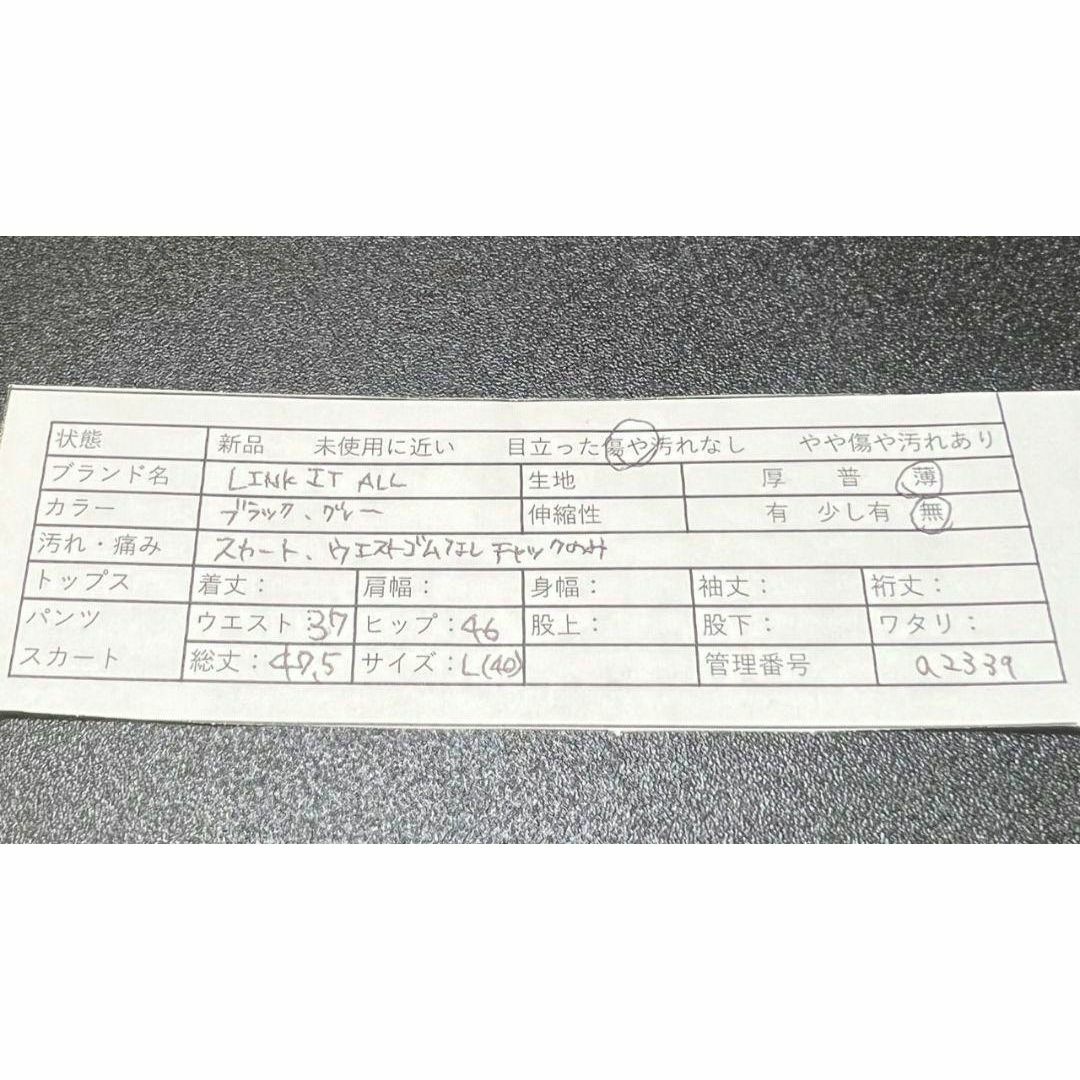 状態 新品 未使用に近い 目立った傷や汚れなし やや傷や汚れあり
ブランド名 LINK IT ALL 生地 厚 普 薄
カラー ブラック、グレー 伸縮性 有 少し有 無
汚れ・痛み スカート、ウエストゴムなし チャックのみ
トップス 着丈： 肩幅： 身幅： 袖丈： 裄丈：
パンツ ウエスト：37 ヒップ：46 股上： 股下： ワタリ：
スカート 総丈：47.5 サイズ：L(40) 管理番号 a2339